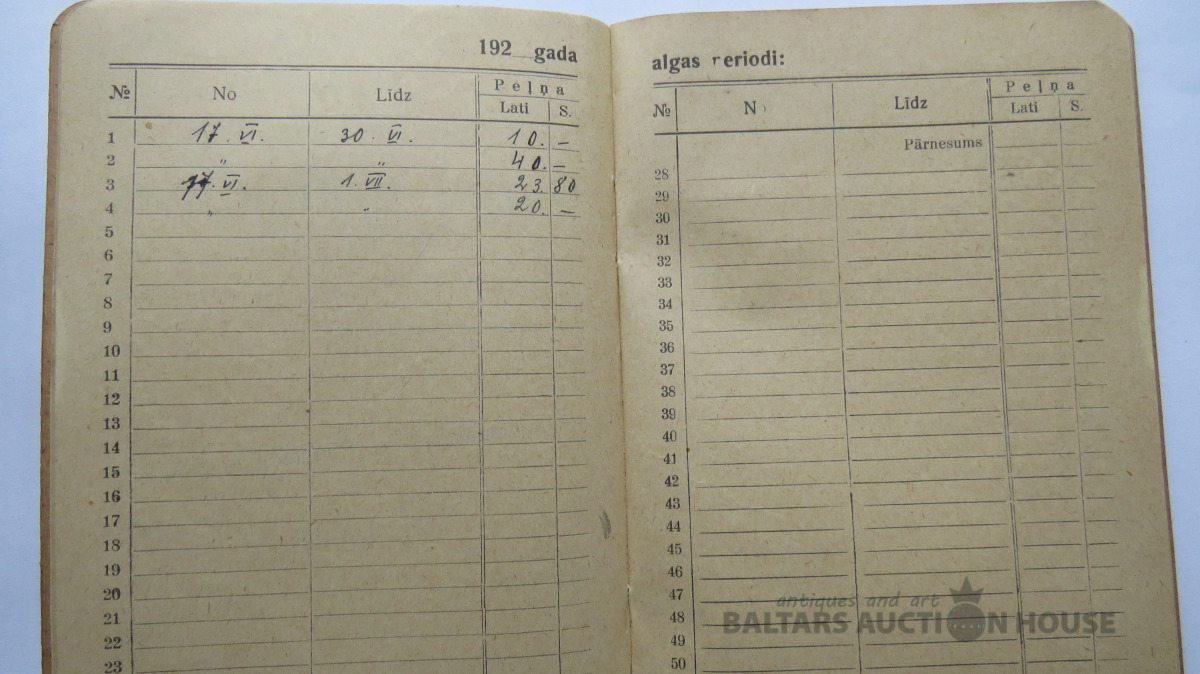 192 gada
№ No Līdz Peļņa
Lati S.
1 17. VI. 30. VI. 10. –
2 " " 40. –
3 17. VI. 1. VII. 23. 80
4 " " 20. –
5
6
7
8
9
10
11
12
13
14
15
16
17
18
19
20
21
22
23
algas eriodi:
№ N Līdz Peļņa
Lati S.
Pārnesums
28
29
30
31
32
33
34
35
36
37
38
39
40
41
42
43
44
45
46
47
48
49
50
antiques and art
BALTARS AUCTION HOUSE